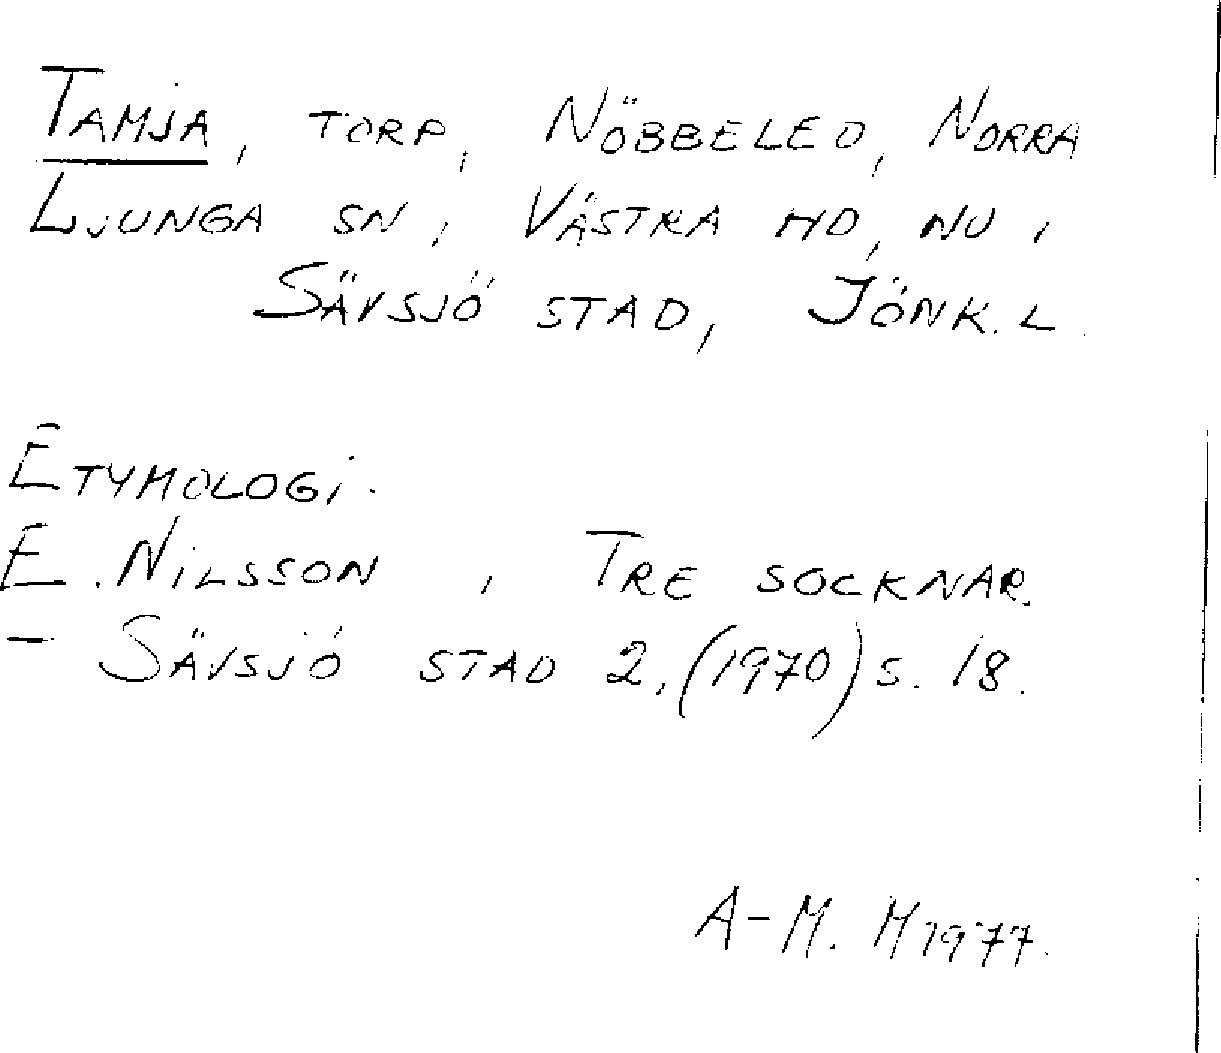 TAMJA, TORP, NÖBBELED, NORRA
LJUNGA SN, VÄSTRA HD, NU I
SÄVSJÖ STAD, JÖNK. L.
ETYMOLOGI.
E. NILSSON, TRE SOCKNAR.
– SÄVSJÖ STAD 2, (1970) S. 18.
A-M. M 1977.